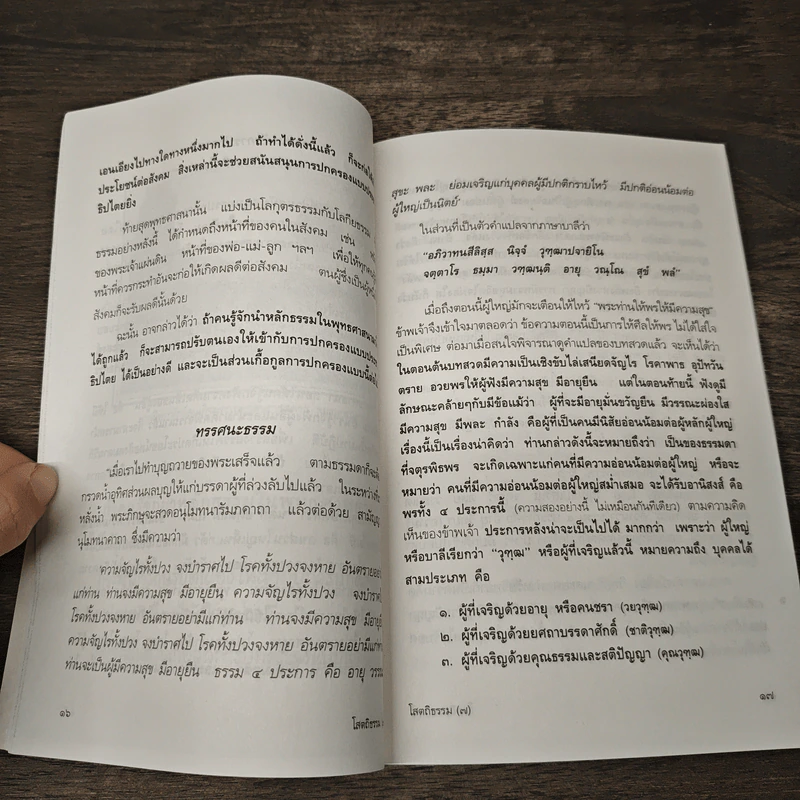 เอนเอียงไปทางใดทางหนึ่งมากไป ถ้าทำได้ดั่งนี้แล้ว ก็จะก่อให้
ประโยชน์ต่อสังคม สิ่งเหล่านี้จะช่วยสนันสนุนการปกครองแบบ
ธิปไตยยิ่ง
ท้ายสุดพุทธศาสนานั้น แบ่งเป็นโลกุตรธรรมกับโลกียธรรม
ธรรมอย่างหลังนี้ ได้กำหนดถึงหน้าที่ของคนในสังคม เช่น
ของพระเจ้าแผ่นดิน หน้าที่ของพ่อ-แม่-ลูก ฯลฯ เพื่อให้ทุกคน
หน้าที่ควรกระทำอันจะก่อให้เกิดผลดีต่อสังคม ตนผู้ซึ่งเป็น
สังคมก็จะรับผลดีนั้นด้วย
ฉะนั้น อาจกล่าวได้ว่า ถ้าคนรู้จักนำหลักธรรมในพุทธศาสนา
ได้ถูกแล้ว ก็จะสามารถปรับตนเองให้เข้ากับการปกครองแบบ
ธิปไตย ได้เป็นอย่างดี และจะเป็นส่วนเกื้อกูลการปกครองแบบนี้
ทรรศนะธรรม
"เมื่อเราไปทำบุญถวายของพระเสร็จแล้ว ตามธรรมดาก็จะมี
กรวดน้ำอุทิศส่วนผลบุญให้แก่บรรดาผู้ที่ล่วงลับไปแล้ว ในระหว่าง
หลั่งน้ำ พระภิกษุจะสวดอนุโมทนารัมภคาถา แล้วต่อด้วย สามัญ
นุโมทนาคาถา ซึ่งมีความว่า
'ความจัญไรทั้งปวง จงบำราศไป โรคทั้งปวงจงหาย อันตรายอย่า
แก่ท่าน ท่านจงมีความสุข มีอายุยืน ความจัญไรทั้งปวง จงบำราศ
โรคทั้งปวงจงหาย อันตรายอย่ามีแก่ท่าน ท่านจงมีความสุข มีอายุยืน
ความจัญไรทั้งปวง จงบำราศไป โรคทั้งปวงจงหาย อันตรายอย่ามีแก่
ท่านจะเป็นผู้มีความสุข มีอายุยืน ธรรม ๔ ประการ คือ อายุ วรรณ
๑๖
โสตถิธรรม
สุขะ พละ ย่อมเจริญแก่บุคคลผู้มีปกติกราบไหว้ มีปกติอ่อนน้อมต่อ
ผู้ใหญ่เป็นนิตย์'
ในส่วนที่เป็นตัวคำแปลจากภาษาบาลีว่า
"อภิวาทนสีลิสฺส นิจฺจํ วุฑฺฒาปจายิโน
จตฺตาโร ธมฺมา วฑฺฒนฺติ อายุ วณฺโณ สุขํ พลํ"
เมื่อถึงตอนนี้ผู้ใหญ่มักจะเตือนให้ไหว้ "พระท่านให้พรให้มีความสุข"
ข้าพเจ้าจึงเข้าใจมาตลอดว่า ข้อความตอนนี้เป็นการให้ศีลให้พร ไม่ได้ใส่ใจ
เป็นพิเศษ ต่อมาเมื่อสนใจพิจารณาดูคำแปลของบทสวดแล้ว จะเห็นได้ว่า
ในตอนต้นบทสวดมีความเป็นเชิงขับไล่เสนียดจัญไร โรคาพาธ อุปัทวัน
ตราย อวยพรให้ผู้ฟังมีความสุข มีอายุยืน แต่ในตอนท้ายนี้ ฟังดูมี
ลักษณะคล้ายๆกับมีข้อแม้ว่า ผู้ที่จะมีอายุมั่นขวัญยืน มีวรรณะผ่องใส
มีความสุข มีพละ กำลัง คือผู้ที่เป็นคนมีนิสัยอ่อนน้อมต่อผู้หลักผู้ใหญ่
เรื่องนี้เป็นเรื่องน่าคิดว่า ท่านกล่าวดังนี้จะหมายถึงว่า เป็นของธรรมดา
ที่จตุรพิธพร จะเกิดเฉพาะแก่คนที่มีความอ่อนน้อมต่อผู้ใหญ่ หรือจะ
หมายว่า คนที่มีความอ่อนน้อมต่อผู้ใหญ่สม่ำเสมอ จะได้รับอานิสงส์ คือ
พรทั้ง ๔ ประการนี้ (ความสองอย่างนี้ ไม่เหมือนกันทีเดียว) ตามความคิด
เห็นของข้าพเจ้า ประการหลังน่าจะเป็นไปได้ มากกว่า เพราะว่า ผู้ใหญ่
หรือบาลีเรียกว่า "วุฑฺฒ" หรือผู้ที่เจริญแล้วนี้ หมายความถึง บุคคลได้
สามประเภท คือ
๑. ผู้ที่เจริญด้วยอายุ หรือคนชรา (วยวุฑฺฒ)
๒. ผู้ที่เจริญด้วยยศถาบรรดาศักดิ์ (ชาติวุฑฺฒ)
๓. ผู้ที่เจริญด้วยคุณธรรมและสติปัญญา (คุณวุฑฺฒ)
โสตถิธรรม (๗)
๑๗